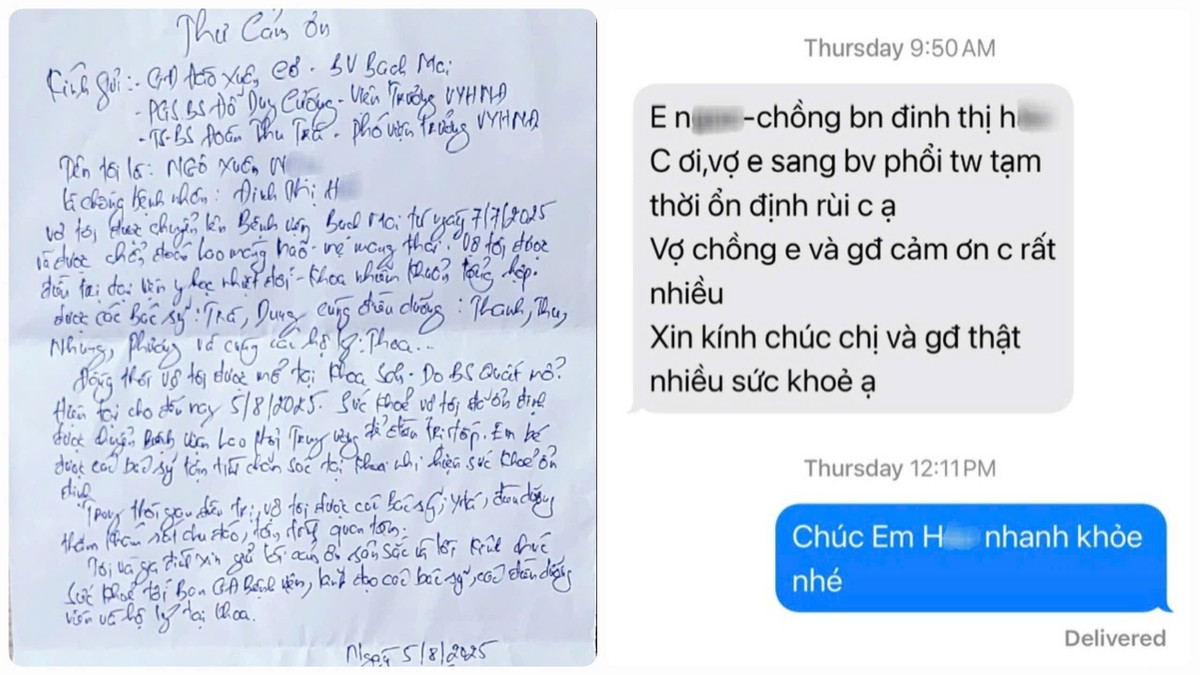 Thư Cảm ơn
Kính gửi: - GĐ Đào Xuân Cơ - BV Bạch Mai
- PGS.BS Đỗ Duy Cường - Viện Trưởng VYHNĐ
- TS-BS Đoàn Thu Trà - Phó viện Trưởng VYHNĐ
Tên tôi là: NGÔ XUÂN N
Là chồng bệnh nhân: Đinh Thị H
vợ tôi được chuyển lên Bệnh viện Bạch Mai từ ngày 7/7/2025
và được chẩn đoán Lao màng não - mẹ mang thai. Vợ tôi được
điều trị tại viện y học nhiệt đới - Khoa nhiễm khuẩn tổng hợp.
được các Bác sỹ: Trà, Dung cùng điều dưỡng: Thanh, Thu,
Nhung, Phương và cùng các hộ lý: Thoa...
Đồng thời vợ tôi được mổ tại Khoa Sản - Do BS Quát mổ.
Hiện tại cho đến nay 5/8/2025. Sức khoẻ vợ tôi đã ổn định
được chuyển Bệnh viện Lao Phổi Trung ương để điều trị tiếp. Em bé
được các bác sỹ tận tình chăm sóc tại khoa nhi hiện sức khoẻ ổn
định.
Trong thời gian điều trị, vợ tôi được các Bác sỹ, y tá, điều dưỡng
thăm khám rất chu đáo, tận tình quan tâm.
Tôi và gia đình xin gửi lời cảm ơn sâu sắc và lời kính chúc
sức khoẻ tới Ban GĐ Bệnh viện, các bác sỹ, các điều dưỡng
viên và hộ lý tại khoa.
Ngày 5/8/2025
Thursday 9:50 AM
E n -chồng bn đinh thị h
C ơi,vợ e sang bv phổi tw tạm
thời ổn định rùi c ạ
Vợ chồng e và gđ cảm ơn c rất
nhiều
Xin kính chúc chị và gđ thật
nhiều sức khoẻ ạ
Thursday 12:11 PM
Chúc Em H nhanh khỏe
nhé
Delivered